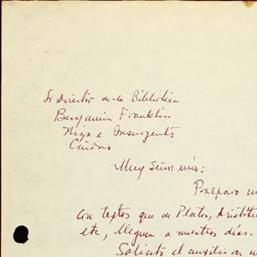 Sr Director de la Biblioteca
Benjamin Franklin
Niza e Insurgentes
Ciudad
Muy Señor mío:
Preparo un
con textos que de Platon, Aristote
etc, lleguen a nuestros días.
Solicito el auxilio de